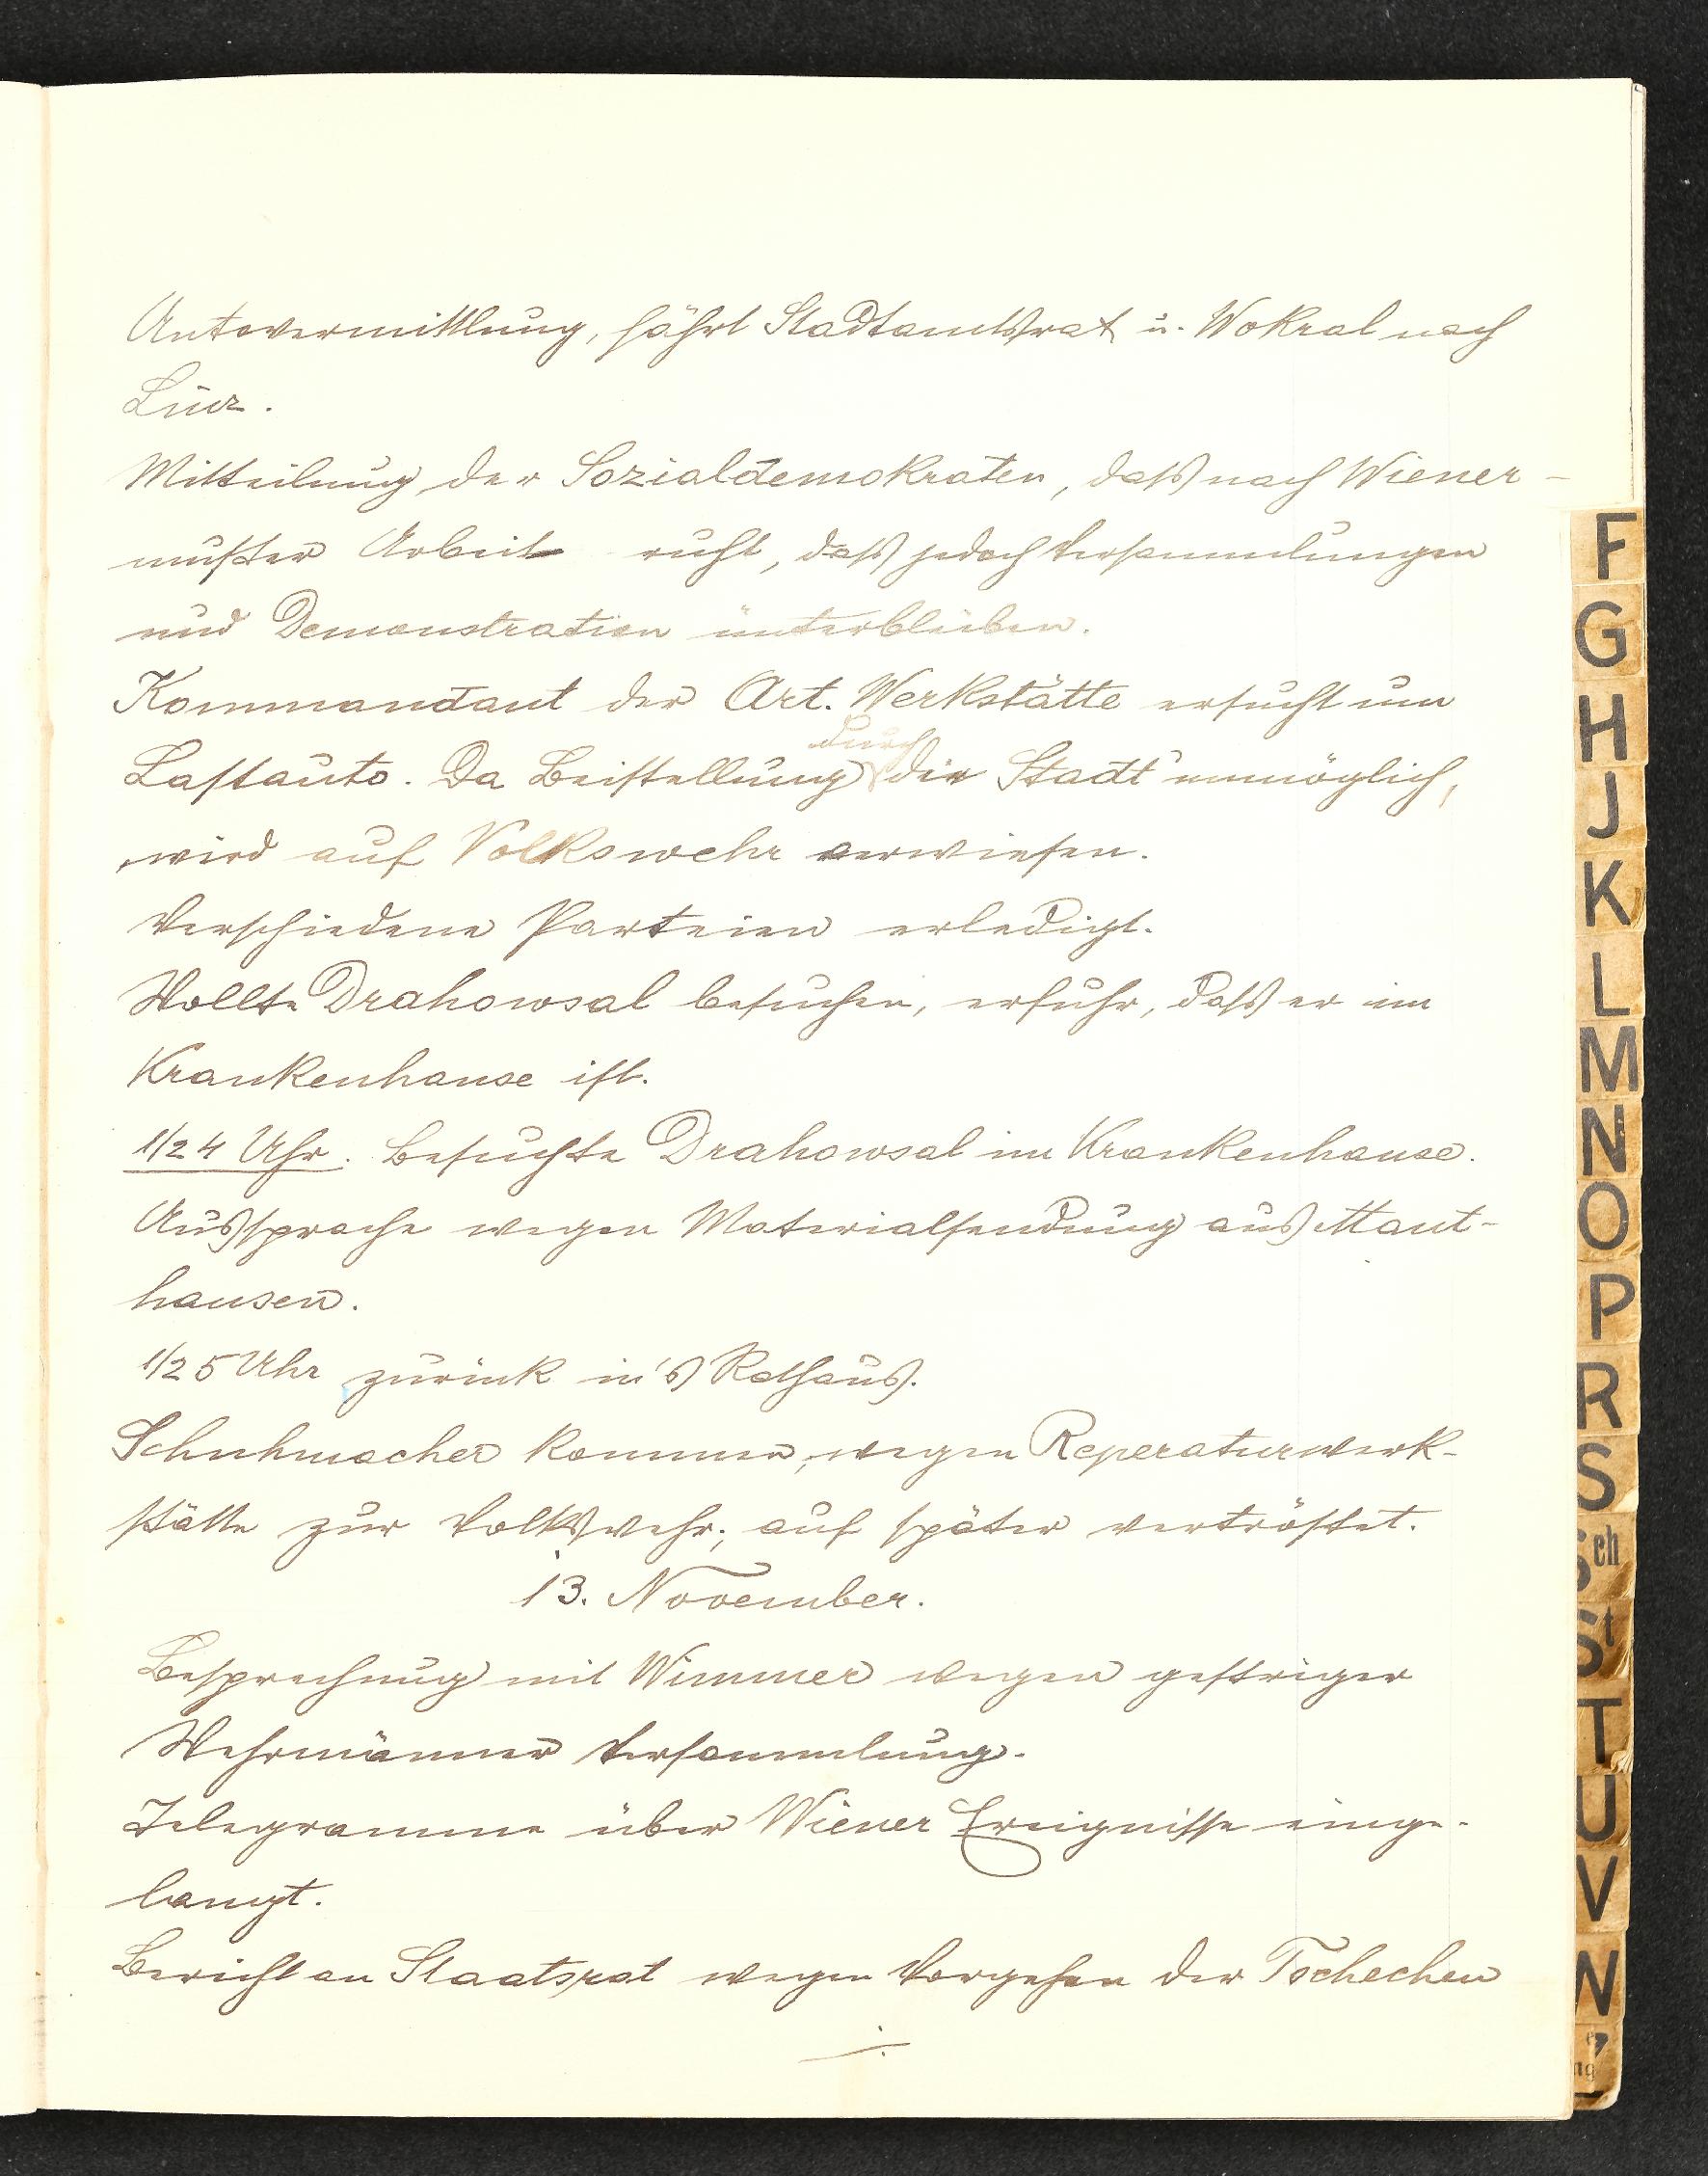 Autovermittlung, fährt Stadtamtsrat u. Wokral nach
Linz.
Mitteilung der Sozialdemokraten, daß nach Wiener-
muster Arbeit ruht, daß jedoch Versammlungen
und Demonstration unterblieben.
Kommandant der Art. Werkstätte ersucht um
durch
Lastauto. Da Beistellung die Stadt unmöglich,
wird auf Volkswehr verwiesen.
Verschiedene Parteien erledigt.
Wollte Drahowsal besuchen, erfuhr, daß er im
Krankenhause ist.
1/2 4 Uhr. Besuchte Drahowsal im Krankenhause.
Aussprache wegen Materialsendung aus Maut-
hausen.
1/2 5 Uhr zurück in's Rathaus.
Schuhmacher kommen, wegen Reperaturwerk-
stätte zur Volkswehr; auf später vertröstet.
13. November.
Besprechung mit Wimmer wegen gestriger
Wehrmänner Versammlung.
Telegramme über Wiener Ereignisse einge-
langt.
Bericht an Staatsrat wegen Vorgehen der Tschechen
./.
F
G
H
J
K
L
M
N
O
P
R
S
Sch
St
T
U
V
W